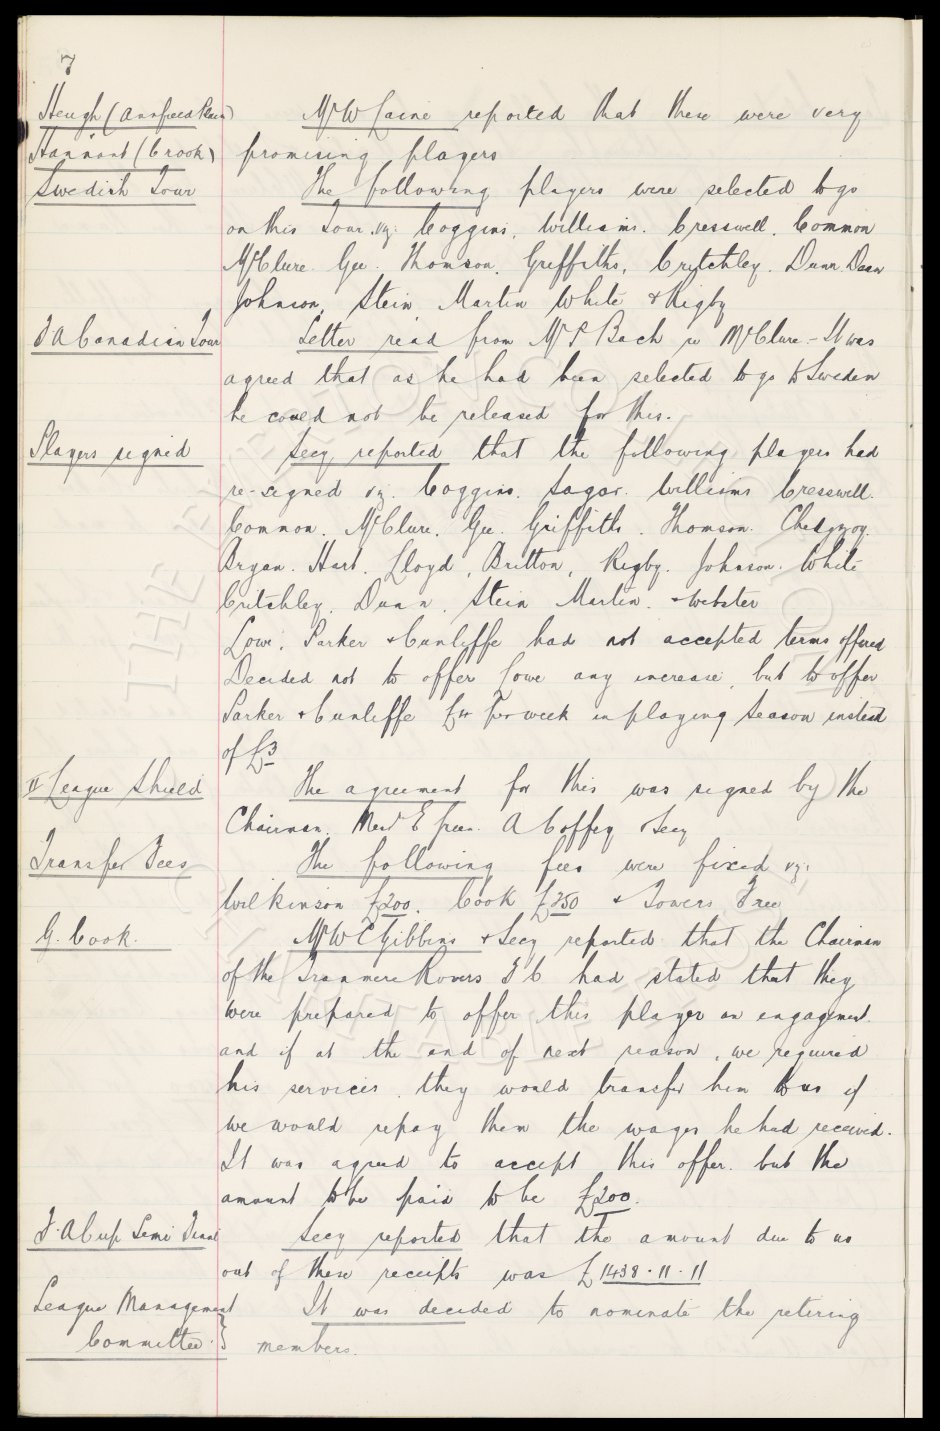 7
Heugh (Annfield Plain)
Hannant (Crook)
Mr W Caine reported that these were very
promising players
Swedish Tour
The following players were selected to go
on this Tour. vz: Coggins. Williams. Cresswell. Common
McClure. Gee. Thomson. Griffiths. Critchley. Dunn. Dean
Johnson. Stein. Martin White & Rigby
F A Canadian Tour
Letter read from Mr P Bach re McClure - It was
agreed that as he had been selected to go to Sweden
he could not be released for this.
Players signed
Secy reported that the following players had
re-signed vz. Coggins. Sagar. Williams Cresswell.
Common. McClure. Gee. Griffiths. Thomson. Chedgzoy.
Bryan. Hart. Lloyd, Britton, Rigby. Johnson. White
Critchley. Dunn. Stein Martin. & Webster
Lowe. Parker & Cunliffe had not accepted terms offered
Decided not to offer Lowe any increase, but to offer
Parker & Cunliffe £4 per week in playing season instead
of £3
II League Shield
The agreement for this was signed by the
Chairman. Messrs E Green. A Coffey & Secy
Transfer Fees
The following fees were fixed vz:
Wilkinson £200. Cook £250 & Towers Free
G. Cook.
Mr W C Gibbins & Secy reported that the Chairman
of the Tranmere Rovers F C had stated that they
were prepared to offer this player an engagement.
and if at the end of next season, we required
his services. they would transfer him to us if
we would repay them the wages he had received.
It was agreed to accept this offer. but the
amount to be paid to be £200.
F. A Cup Semi Final
Secy reported that the amount due to us
out of these receipts was £1438 . 11 . 11
League Management
Committee }
It was decided to nominate the retiring
members.